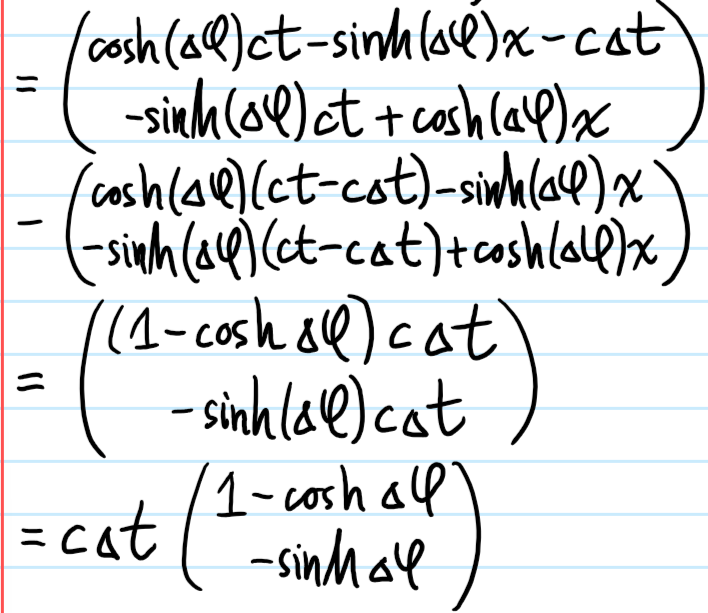 = ( cosh(Δφ)ct-sinh(Δφ)x-cΔt
-sinh(Δφ)ct+cosh(Δφ)x )
- ( cosh(Δφ)(ct-cΔt)-sinh(Δφ)x
-sinh(Δφ)(ct-cΔt)+cosh(Δφ)x )
= ( (1-cosh Δφ)cΔt
-sinh(Δφ)cΔt )
= cΔt ( 1-cosh Δφ
-sinh Δφ )